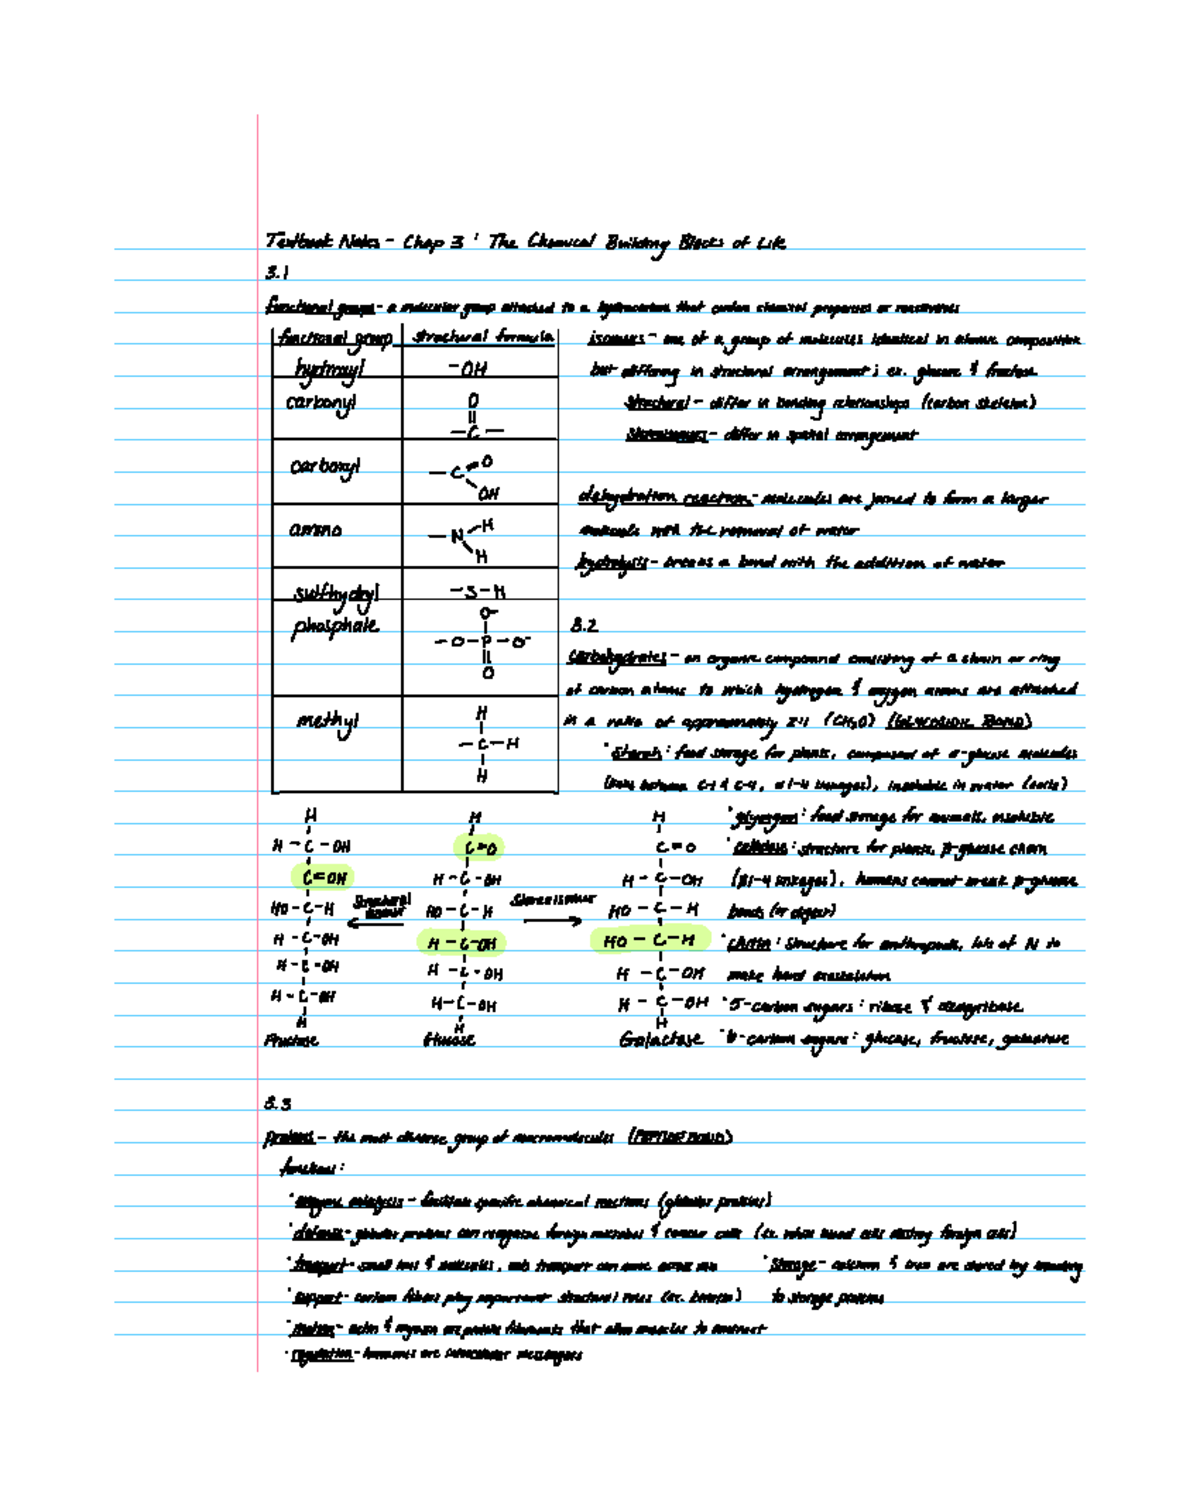 Textbook Notes - Chap 3 : The Chemical Building Blocks of Life
3.1
functional groups - a molecular group attached to a hydrocarbon that confers chemical properties or reactivities
functional group structural formula
hydroxyl -OH
carbonyl
O
-C-
carboxyl
-C=O
OH
amino
-N-H
H
sulfhydryl -S-H
phosphate
O-
-O-P-O-
O
methyl
H
-C-H
H
isomers - one of a group of molecules identical in atomic composition
but differing in structural arrangement; ex. glucose & fructose
structural - differ in bonding relationships (carbon skeleton)
stereoisomers - differ in spatial arrangement
dehydration reaction - molecules are joined to form a larger
molecule with the removal of water
hydrolysis - breaks a bond with the addition of water
3.2
carbohydrates - an organic compound consisting of a chain or ring
of carbon atoms to which hydrogen & oxygen atoms are attached
in a ratio of approximately 2:1 (CH2O) (GLYCOSIDIC BOND)
· starch : food storage for plants, composed of α-glucose molecules
(links between C-1 & C-4, α1-4 linkages), insoluble in water
· glycogen : food storage for animals, insoluble
· cellulose : structure for plants, β-glucose chain
(β1-4 linkages), humans cannot break β-glucose
bonds (or digest)
· chitin : structure for arthropods, lots of N to
make hard exoskeleton
· 5-carbon sugars : ribose & deoxyribose
· 6-carbon sugars : glucose, fructose, galactose
H
H-C-OH
C=OH
HO-C-H
H-C-OH
H-C-OH
H-C-OH
H
Fructose
structural isomer
H
C=O
H-C-OH
HO-C-H
H-C-OH
H-C-OH
H-C-OH
H
Glucose
Stereoisomer
H
C=O
H-C-OH
HO-C-H
HO-C-H
H-C-OH
H-C-OH
H
Galactose
3.3
proteins - the most diverse group of macromolecules (PEPTIDE BOND)
functions:
· enzyme catalysis - facilitate specific chemical reactions (globular proteins)
· defense - globular proteins can recognize foreign microbes & cancer cells (ex. white blood cells destroy foreign cells)
· transport - small ions & molecules,
· storage - calcium & iron are stored by binding
to storage proteins
· support - certain fibers play important structural roles (ex. keratin)
· motion - actin & myosin are protein filaments that allow muscles to contract
· regulation - hormones are intercellular messengers